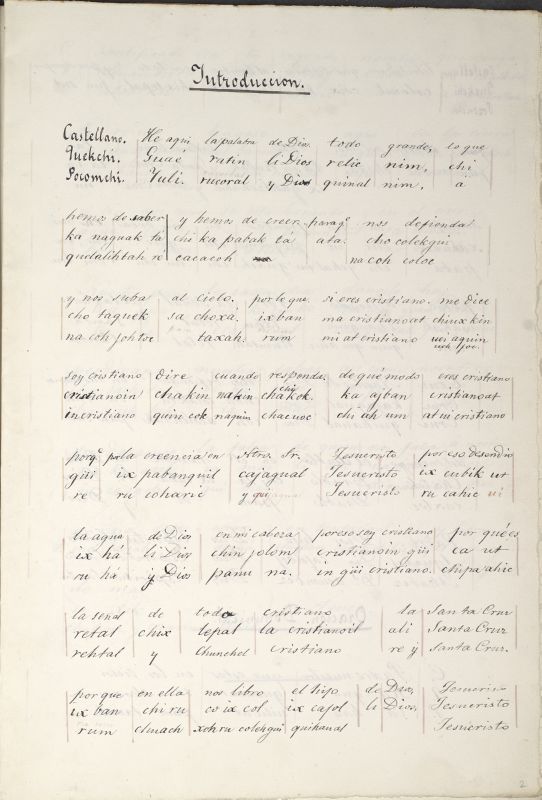 Introduccion.
Castellano. He aqui la palabra de Dios todo grande, lo que
Quekchi. Guaé ratin li Dios relic nim, chi
Pocomchi. Yuli. rucoral y Dios quinal nim, á
hemos de saber y hemos de creer paraq.e nos defienda
ka naguak tá chi ka pabak tá ata. cho colekgui
quidalihtah re cacacoh na coh coloc
y nos suba al cielo. por lo que. si eres cristiano. me dice
cho taguek sa choxá. ixban ma cristianoat chiuxkin
na coh johtoc taxah. rum mi at cristiano uei aquin
soy cristiano dire cuando responda. de qué modo eres cristiano
cristianoin chakin chakok. ka ajban cristianoat
in cristiano quin cok naquin chacuoc chi cah um at ui cristiano
porq.e por la creencia en Ntro. Sr. Jesucristo por eso desendio
ix pabanquil cajagual Jesucristo ix cubik ut
re ru coharic y qui Jesucristo ru cahic ui
la agua de Dios en mi cabeza por eso soy cristiano por qué es
ix há li Dios chin jolom cristianoin güi ca ut
ru há y Dios panu ná. in güi cristiano. chipa ahic
la señal de todo cristiano la Santa Cruz
retal chix lepal la cristianoil ali Santa Cruz
rehtal y chunchel cristiano re y Santa Cruz.
porque en ella nos libro el hijo de Dios, Jesucristo
ix ban chi ru co ix col ix cajol li Dios, Jesucristo
rum chuach xoh ru colekgui quihauul Jesucristo
2